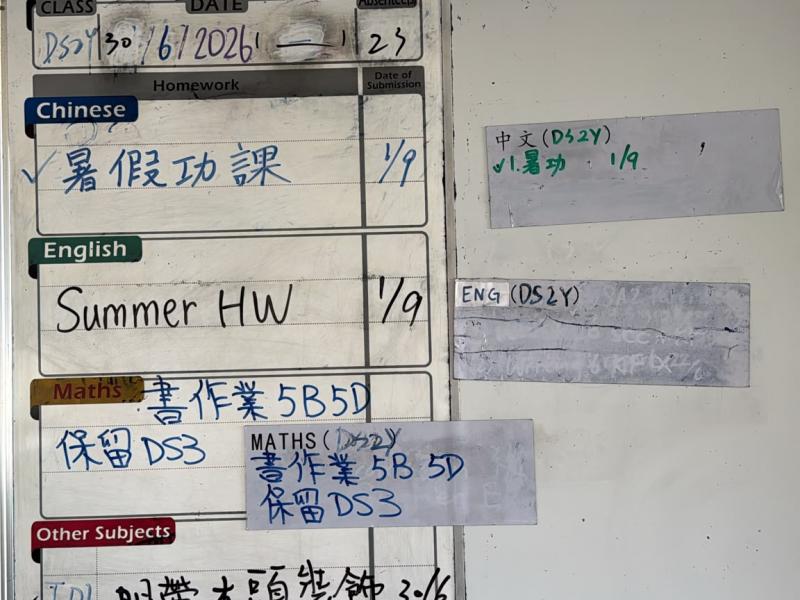 CLASS DATE Absentees
DS2Y 30/6/2026 ( — ) 23
Homework Date of Submission
Chinese
✓暑假功課 1/9
English
Summer HW 1/9
Maths 書作業 5B5D
保留 DS3
Other Subjects
木頭裝飾 30/6
中文(DS2Y)
✓1.暑功 1/9
ENG (DS2Y)
MATHS (DS2Y)
書作業 5B 5D
保留 DS3